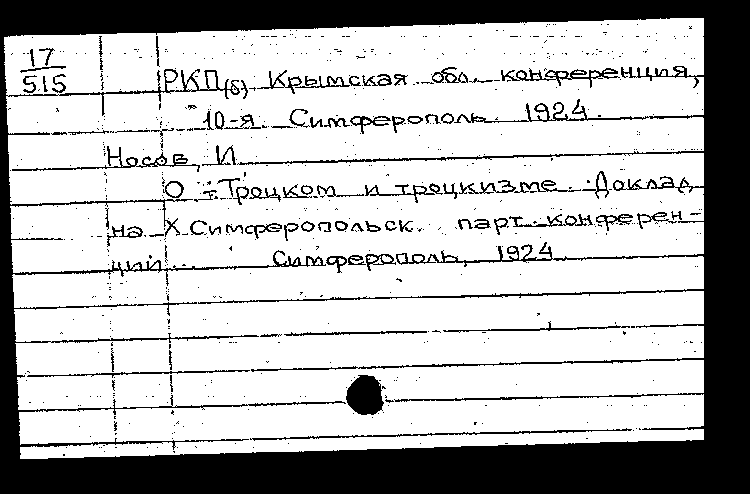 17
515
РКП(б) Крымская обл. конференция,
10-я. Симферополь. 1924.
Носов, И
О Троцком и троцкизме. Доклад
на X Симферопольск. парт. конферен-
ции... Симферополь, 1924